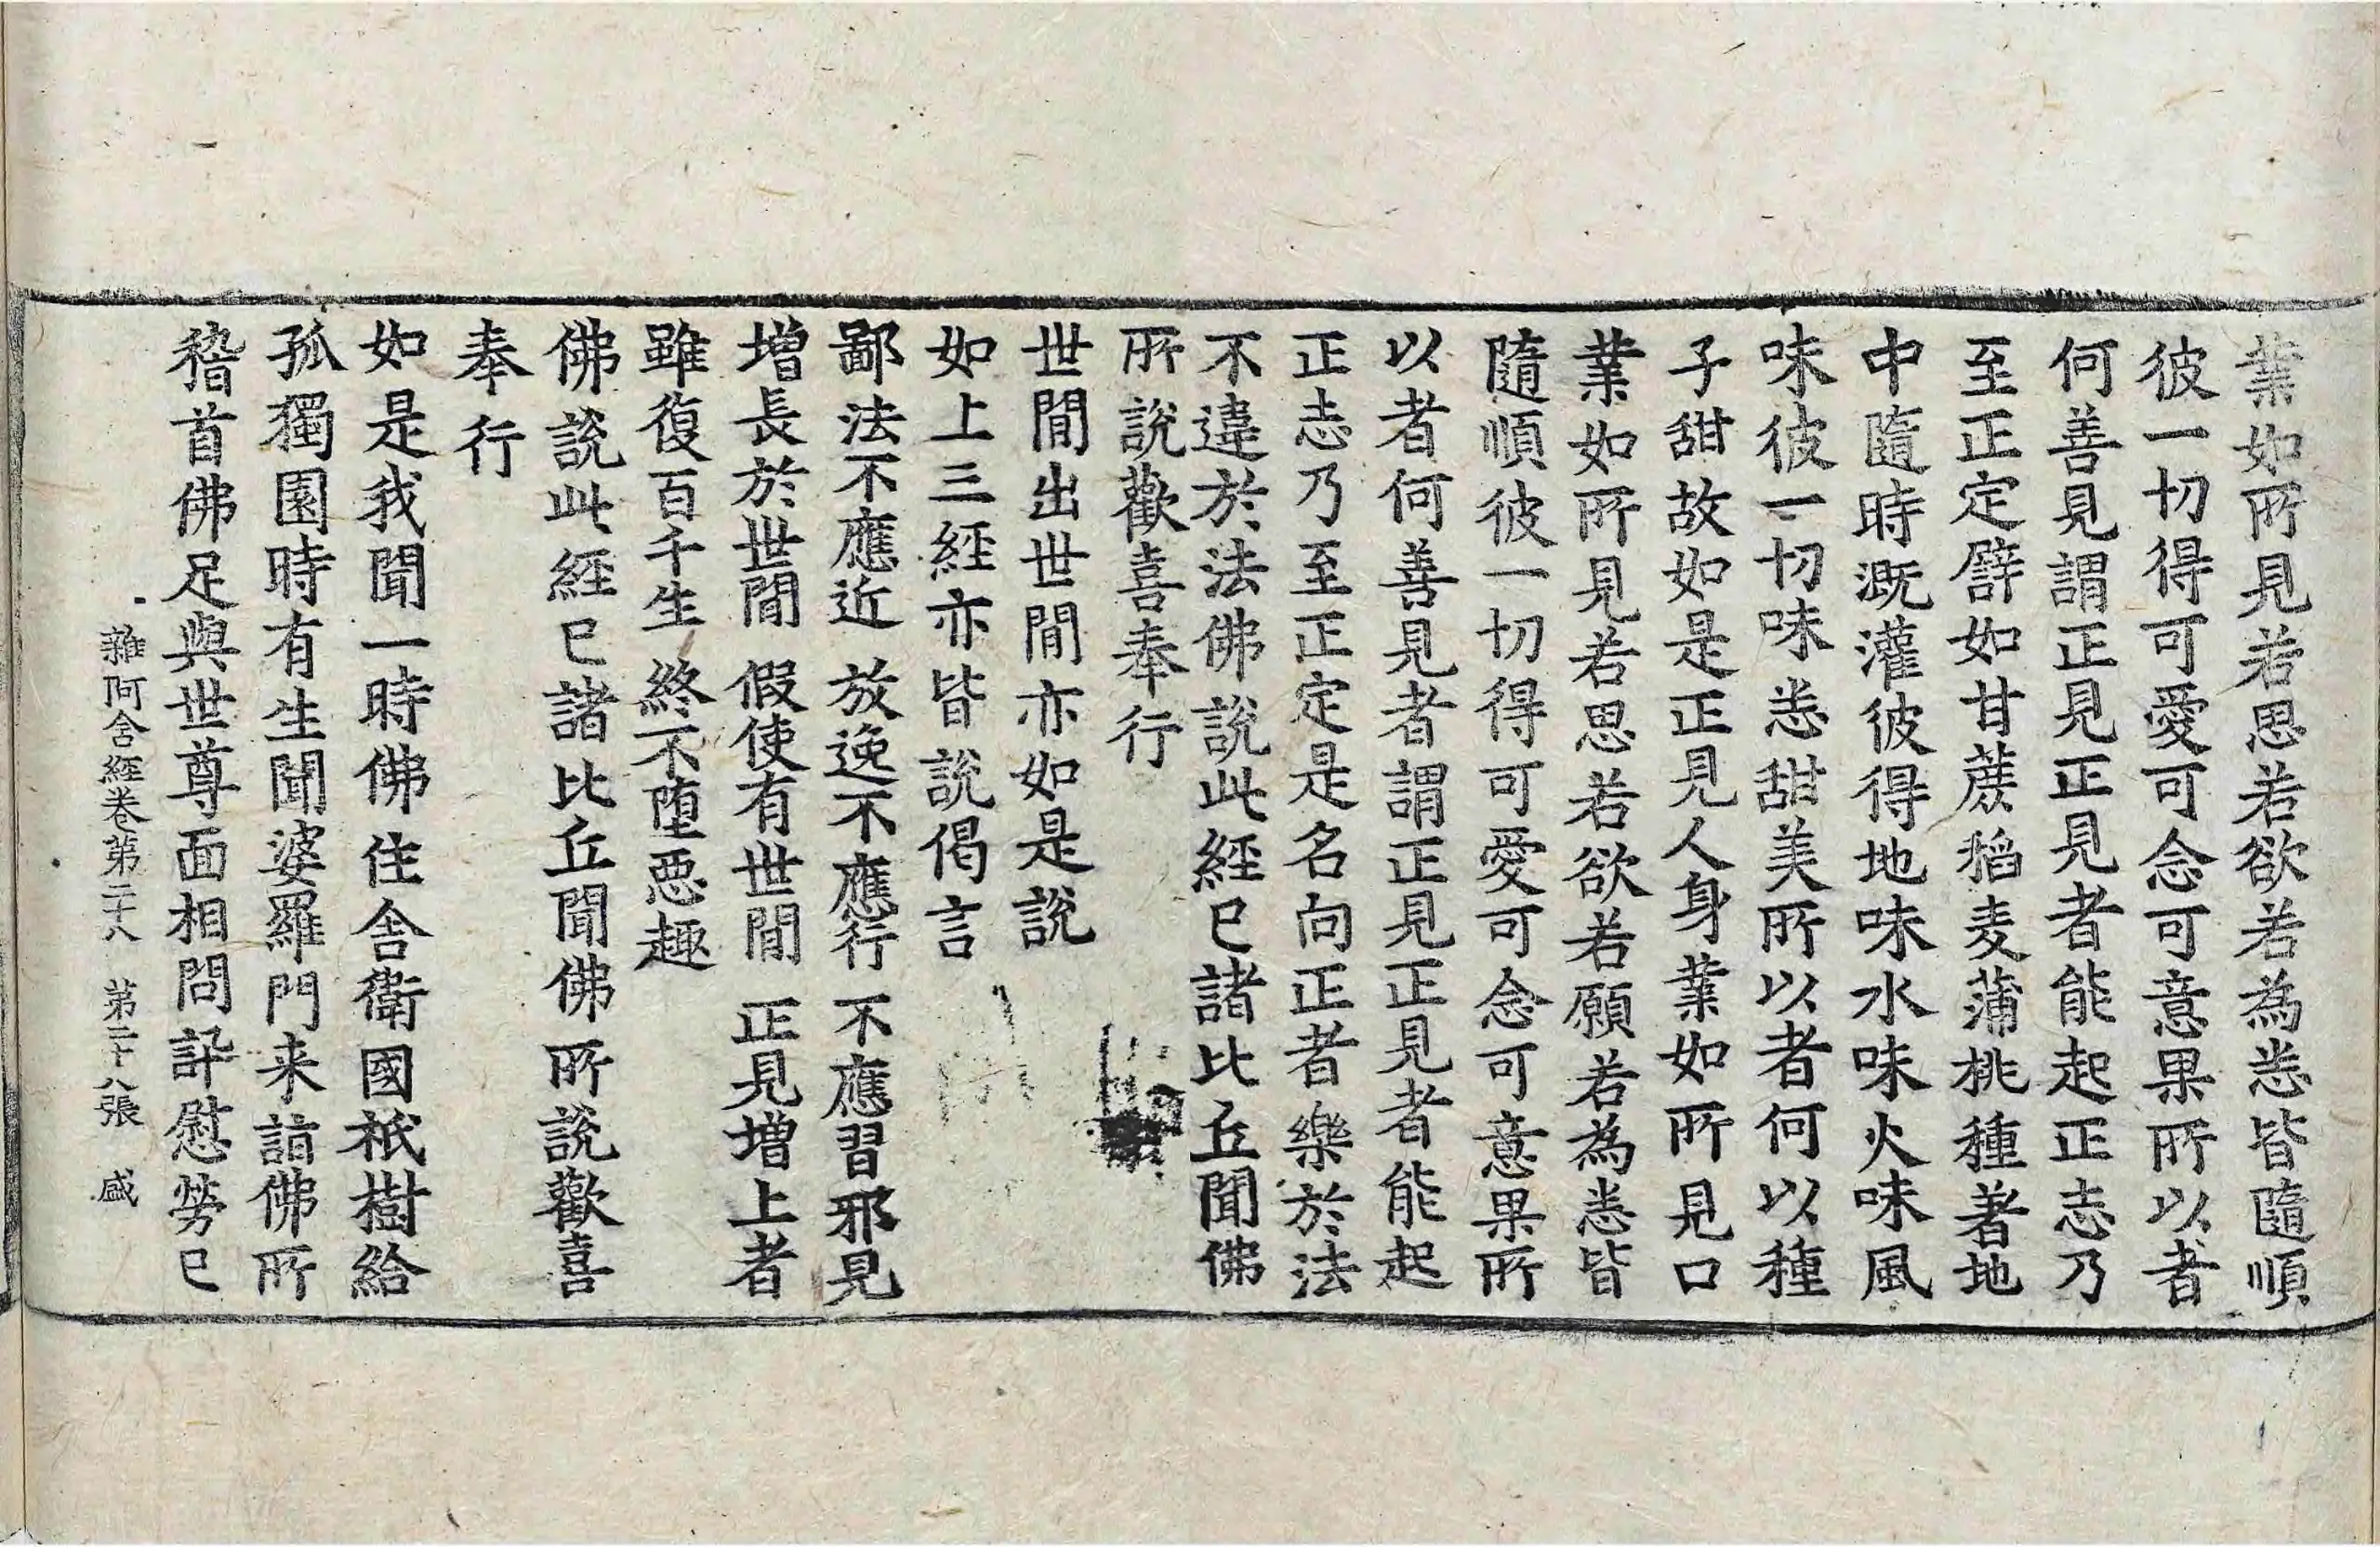 業如所見若思若欲若為悉皆隨順
彼一切得可愛可念可意果所以者
何善見謂正見正見者能起正志乃
至正定譬如甘蔗稻麦蒲桃種著地
中隨時溉灌彼得地味水味火味風
味彼一切味悉甜美所以者何以種
子甜故如是正見人身業如所見口
業如所見若思若欲若願若為悉皆
隨順彼一切得可愛可念可意果所
以者何善見者謂正見正見者能起
正志乃至正定是名向正者樂於法
不違於法佛說此經已諸比丘聞佛
所說歡喜奉行
世間出世間亦如是說
如上三經亦皆說偈言
鄙法不應近 放逸不應行 不應習邪見
增長於世間 假使有世間 正見增上者
雖復百千生 終不墮惡趣
佛說此經已諸比丘聞佛所說歡喜
奉行
如是我聞一時佛住舍衛國祇樹給
孤獨園時有生聞婆羅門来詣佛所
稽首佛足與世尊面相問訊慰勞已
雜阿含經卷第二十八 第二十八張 盛